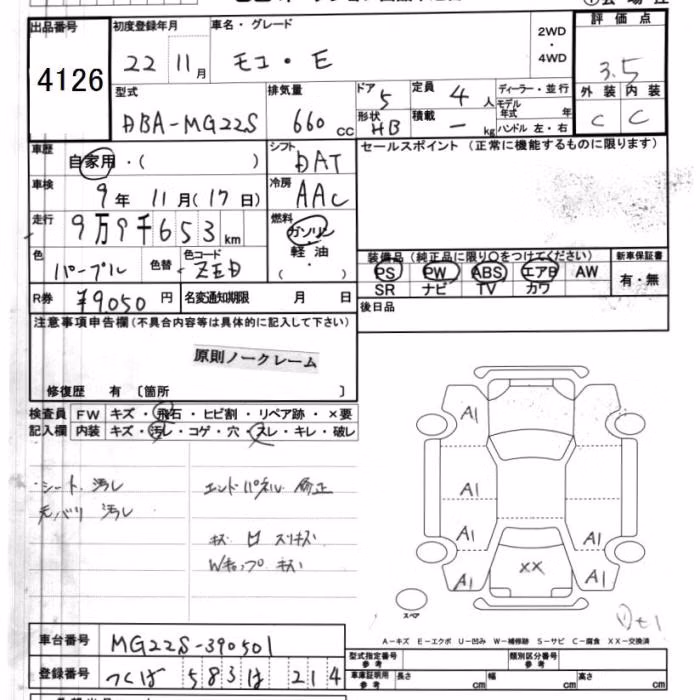 出品番号 初度登録年月 車名・グレード 2WD・4WD 評価点
4126 22 11月 モコ・E 3.5
型式 排気量 ドア 5 定員 4人 ディーラー・並行 外装 内装
DBA-MG22S 660cc 形状 HB 積載 ーkg モデル年式 年 C C
ハンドル 左・右
車歴 自家用・( ) シフト DAT セールスポイント (正常に機能するものに限ります)
車検 9年 11月(17日) 冷房 AAC
走行 9万9千653km 燃料 ガソリン・軽油・( )
色 パープル 色替 カラーコード ZED
装備品(純正品に限り○をつけてください) 新車保証書
PS PW ABS エアB AW 有・無
SR ナビ TV カワ
R券 ¥9,050円 名変通知期限 月 日 後日品
注意事項申告欄(不具合内容等は具体的に記入して下さい)
原則ノークレーム
修復歴 有 〔箇所 〕
検査員 FW キズ・飛石・ヒビ割・リペア跡・×要
記入欄 内装 キズ・汚レ・コゲ・穴・スレ・キレ・破レ
・シート 汚レ エンドパネル 修正
天バリ 汚レ
キズ 凹 スリキズ
A1
A1
A1 A1
A1 XX A1
スペア
A-キズ E-エクボ U-凹み W-補修跡 S-サビ C-腐食 XX-交換済
車台番号 MG22S-390501 型式指定番号 参考 類別区分番号 参考
登録番号 つくば 583 は 214 車庫証明用 参考 長さ cm 幅 cm 高さ cm